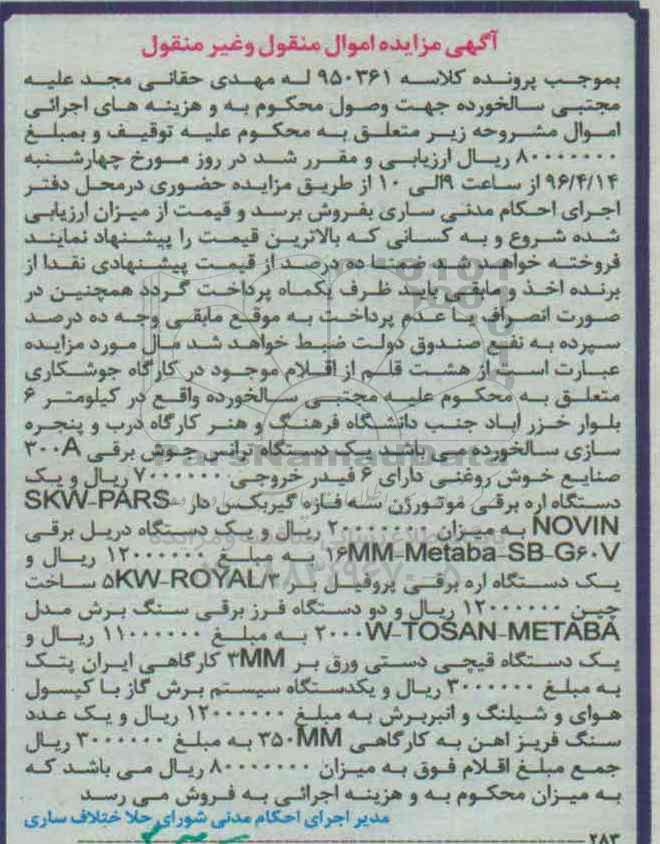 آگهی مزایده اموال منقول وغیر منقول
بموجب پرونده کلاسه ۹۵۰۳۶۱ له مهدی حقانی مجد علیه
مجتبی سالخورده جهت وصول محکوم به و هزینه های اجرائی
اموال مشروحه زیر متعلق به محکوم علیه توقیف و بمبلغ
۸۰۰۰۰۰۰۰ ریال ارزیابی و مقرر شد در روز مورخ چهارشنبه
۹۶/۴/۱۴ از ساعت ۹الی ۱۰ از طریق مزایده حضوری درمحل دفتر
اجرای احکام مدنی ساری بفروش برسد و قیمت از میزان ارزیابی
شده شروع و به کسانی که بالاترین قیمت را پیشنهاد نمایند
فروخته خواهد شد ضمنا ده درصد از قیمت پیشنهادی نقدا از
برنده اخذ و مابقی باید ظرف یکماه پرداخت گردد همچنین در
صورت انصراف یا عدم پرداخت به موقع مابقی وجه ده درصد
سپرده به نفع صندوق دولت ضبط خواهد شد مال مورد مزایده
عبارت است از هشت قلم از اقلام موجود در کارگاه جوشکاری
متعلق به محکوم علیه مجتبی سالخورده واقع در کیلومتر ۶
بلوار خزر اباد جنب دانشگاه فرهنگ و هنر کارگاه درب و پنجره
سازی سالخورده می باشد یک دستگاه ترانس جوش برقی ۳۰۰A
صنایع خوش روغنی دارای ۶ فیدر خروجی ۷۰۰۰۰۰۰ ریال و یک
دستگاه اره برقی موتورژن سه فازه گیربکس دار SKW-PARS
NOVIN به میزان ۲۰۰۰۰۰۰۰ ریال و یک دستگاه دریل برقی
۱۶MM-Metaba-SB-G۶۰V به مبلغ ۱۲۰۰۰۰۰۰ ریال و
یک دستگاه اره برقی پروفیل بر ۵KW-ROYAL/۳ ساخت
چین ۱۲۰۰۰۰۰۰ ریال و دو دستگاه فرز برقی سنگ برش مدل
۲۰۰۰W-TOSAN-METABA به مبلغ ۱۱۰۰۰۰۰۰ ریال و
یک دستگاه قیچی دستی ورق بر ۳MM کارگاهی ایران پتک
به مبلغ ۳۰۰۰۰۰۰ ریال و یکدستگاه سیستم برش گاز با کپسول
هوای و شیلنگ و انبربرش به مبلغ ۱۲۰۰۰۰۰۰ ریال و یک عدد
سنگ فریز اهن به کارگاهی ۳۵۰MM به مبلغ ۳۰۰۰۰۰۰ ریال
جمع مبلغ اقلام فوق به میزان ۸۰۰۰۰۰۰۰ ریال می باشد که
به میزان محکوم به و هزینه اجرائی به فروش می رسد
مدیر اجرای احکام مدنی شورای حلا ختلاف ساری
۲۸۳